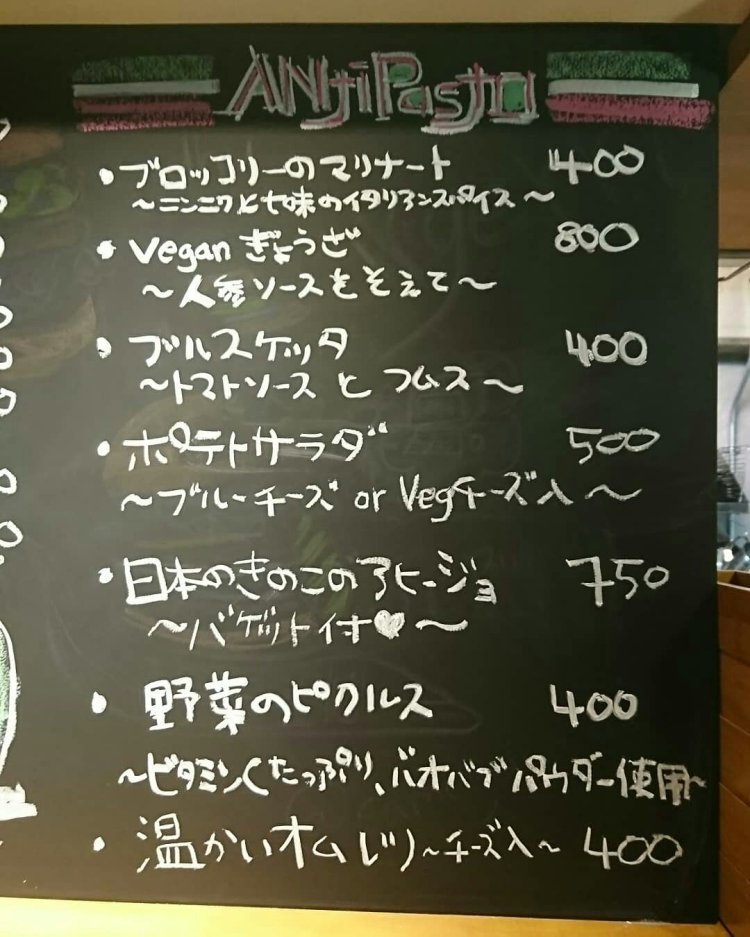 ANtiPasto
・ブロッコリーのマリナート 400
～ニンニクと七味のイタリアンスパイス～
・Vegan ぎょうざ 800
～人参ソースをそえて～
・ブルスケッタ 400
～トマトソース と フムス～
・ポテトサラダ 500
～ブルーチーズ or Vegチーズ入～
・日本のきのこのアヒージョ 750
～バゲット付♥～
・野菜のピクルス 400
～ビタミンCたっぷり、バオバブパウダー使用～
・温かいオムレツ～チーズ入～ 400